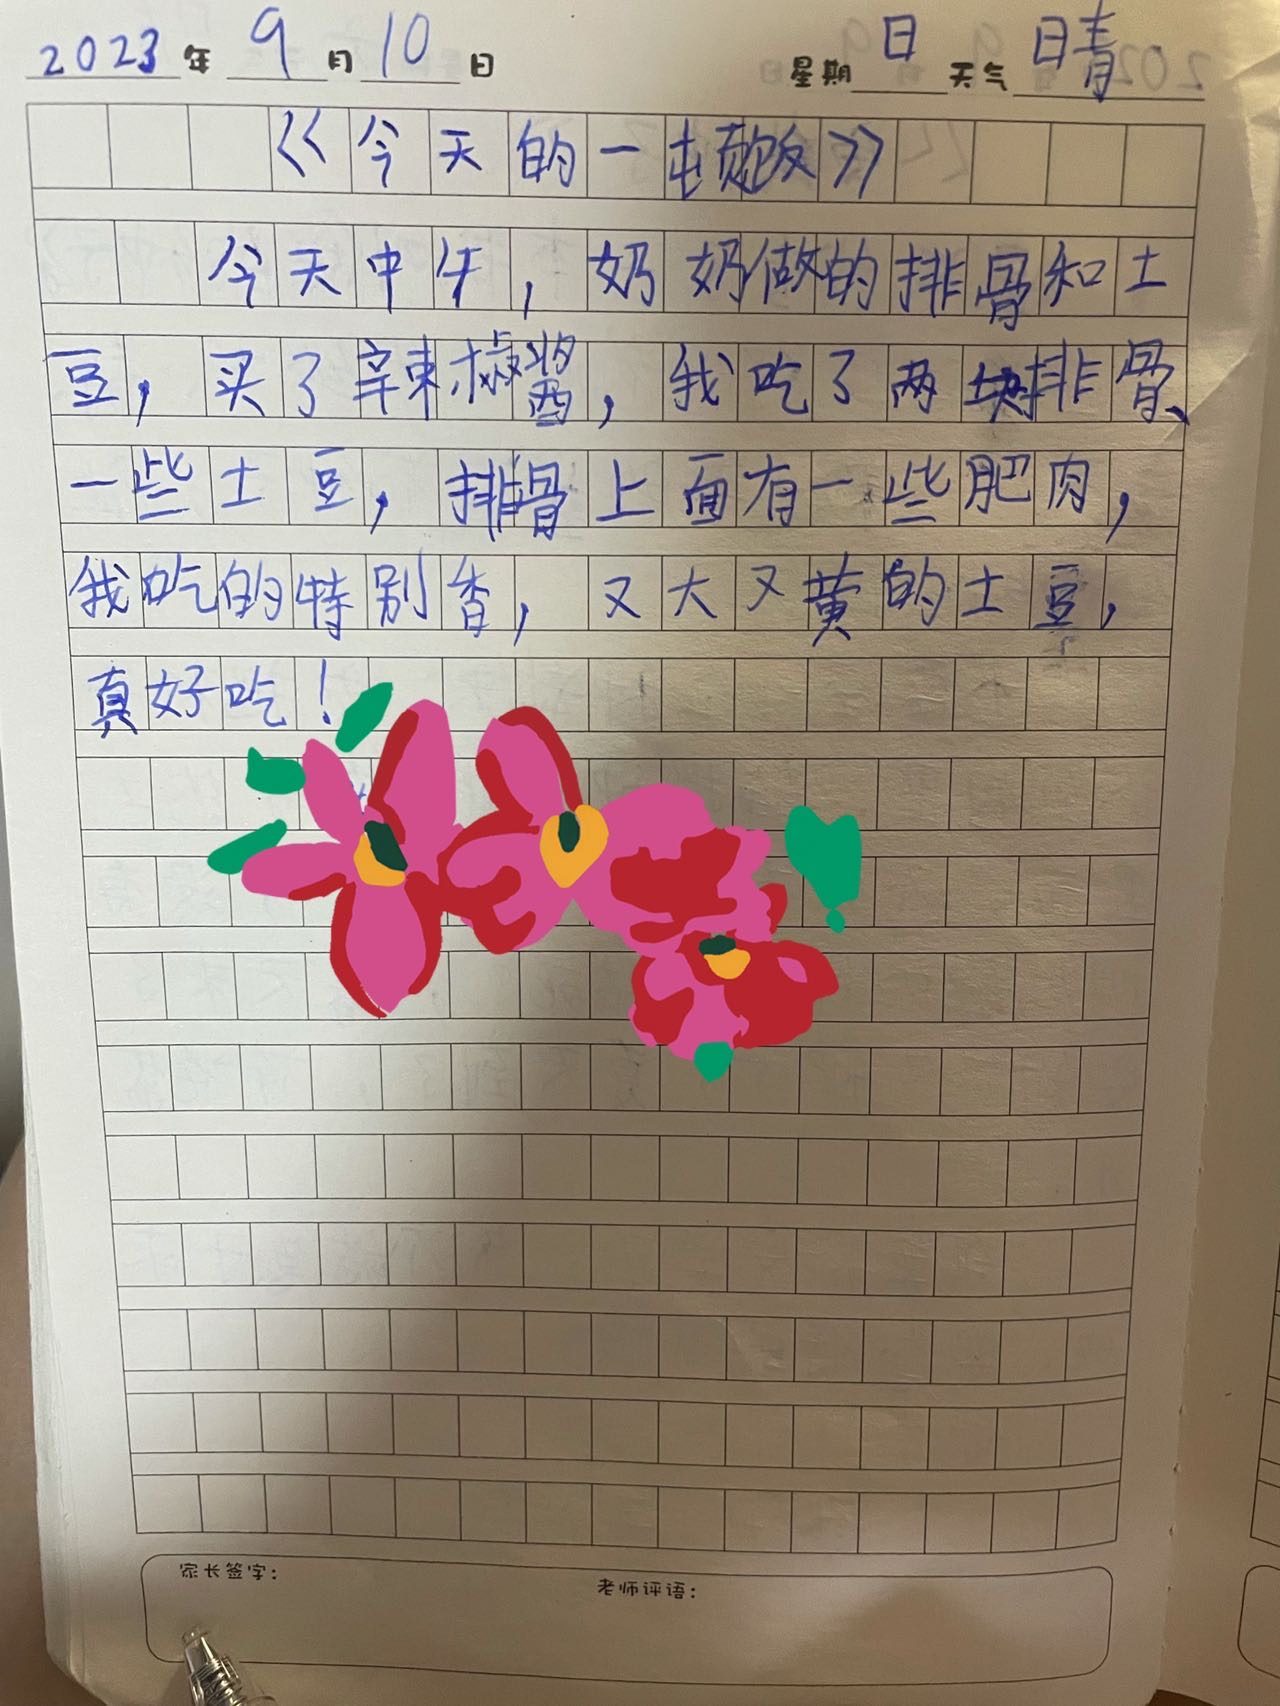 2023年9月10日 星期日 天气晴
《今天的一顿饭》
今天中午,奶奶做的排骨和土
豆,买了辣椒酱,我吃了两块排骨、
一些土豆,排骨上面有一些肥肉,
我吃的特别香,又大又黄的土豆,
真好吃!
家长签字: 老师评语: